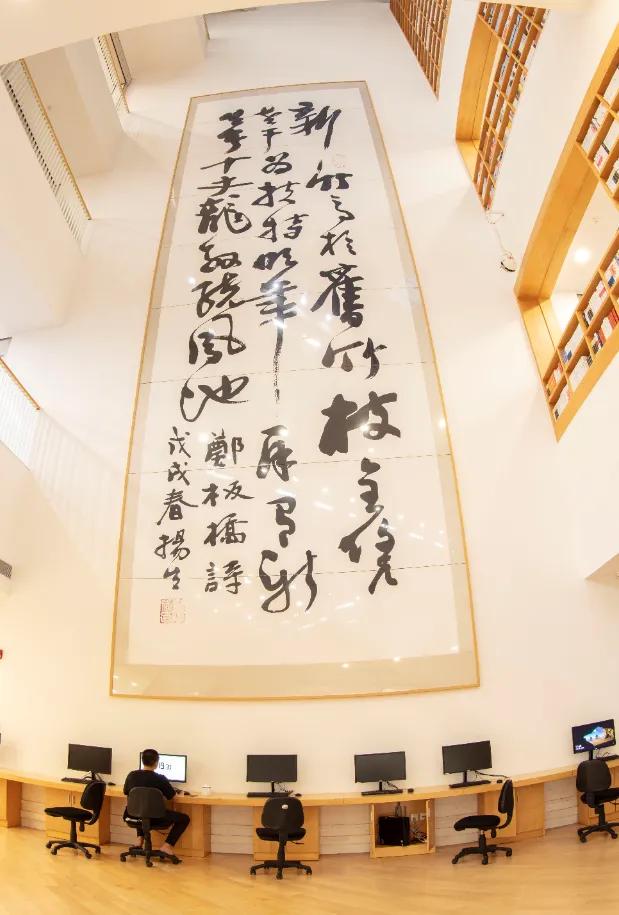 新竹高於舊竹枝全凭
老干为扶持明年再有新
生者十丈龍孫繞鳳池
鄭板橋詩
戊戌春揚生